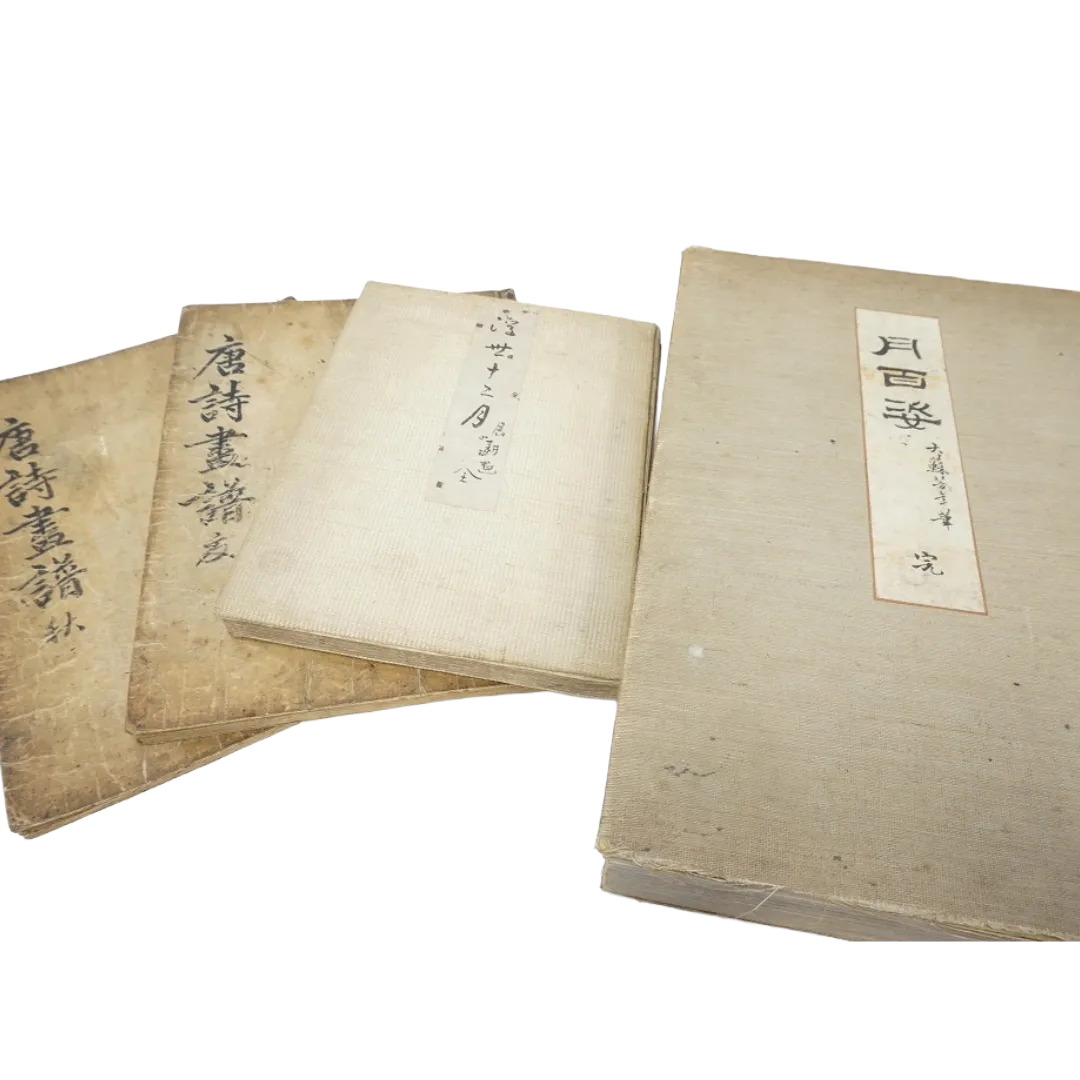 月百姿
大蘇芳年筆
完
浮世十二月
全
唐詩畫譜
夏
唐詩畫譜
秋